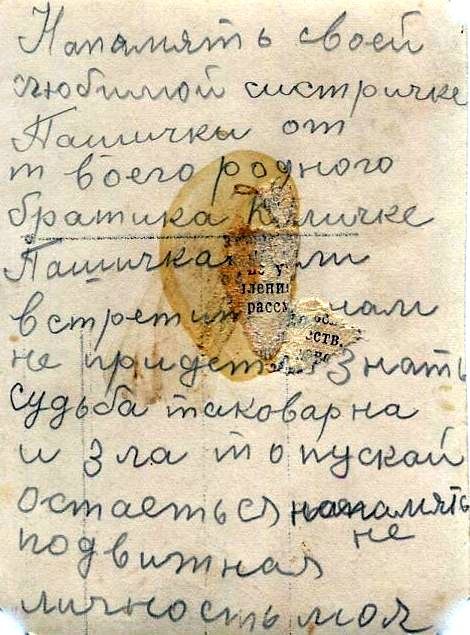 Напамять своей
любимой систричке
Пашички от
твоего родного
братика Количке
Пашичка ли
ления
рассу
встретит нам
ств,
не придет знать
судьба таковарна
и зла то пускай
остаеться напамять
не
подвижная
личность моя